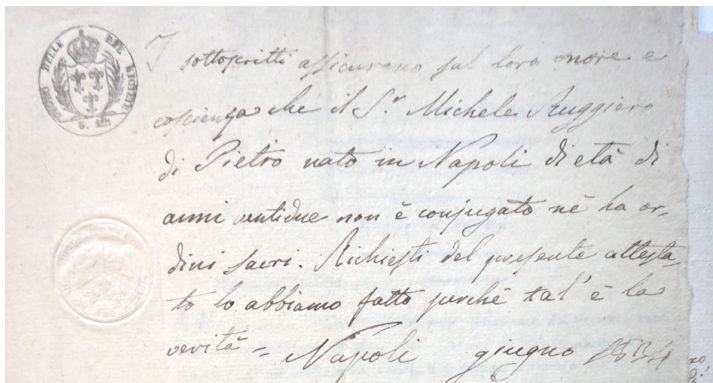 I sottoscritti assicurano sul loro onore e
coscienza che il S.r Michele Ruggiero
di Pietro nato in Napoli di età di
anni ventidue non è conjugato nè ha or-
dini sacri. Richiesti del presente attesta-
to lo abbiamo fatto perchè tal' è la
verità = Napoli giugno 1834